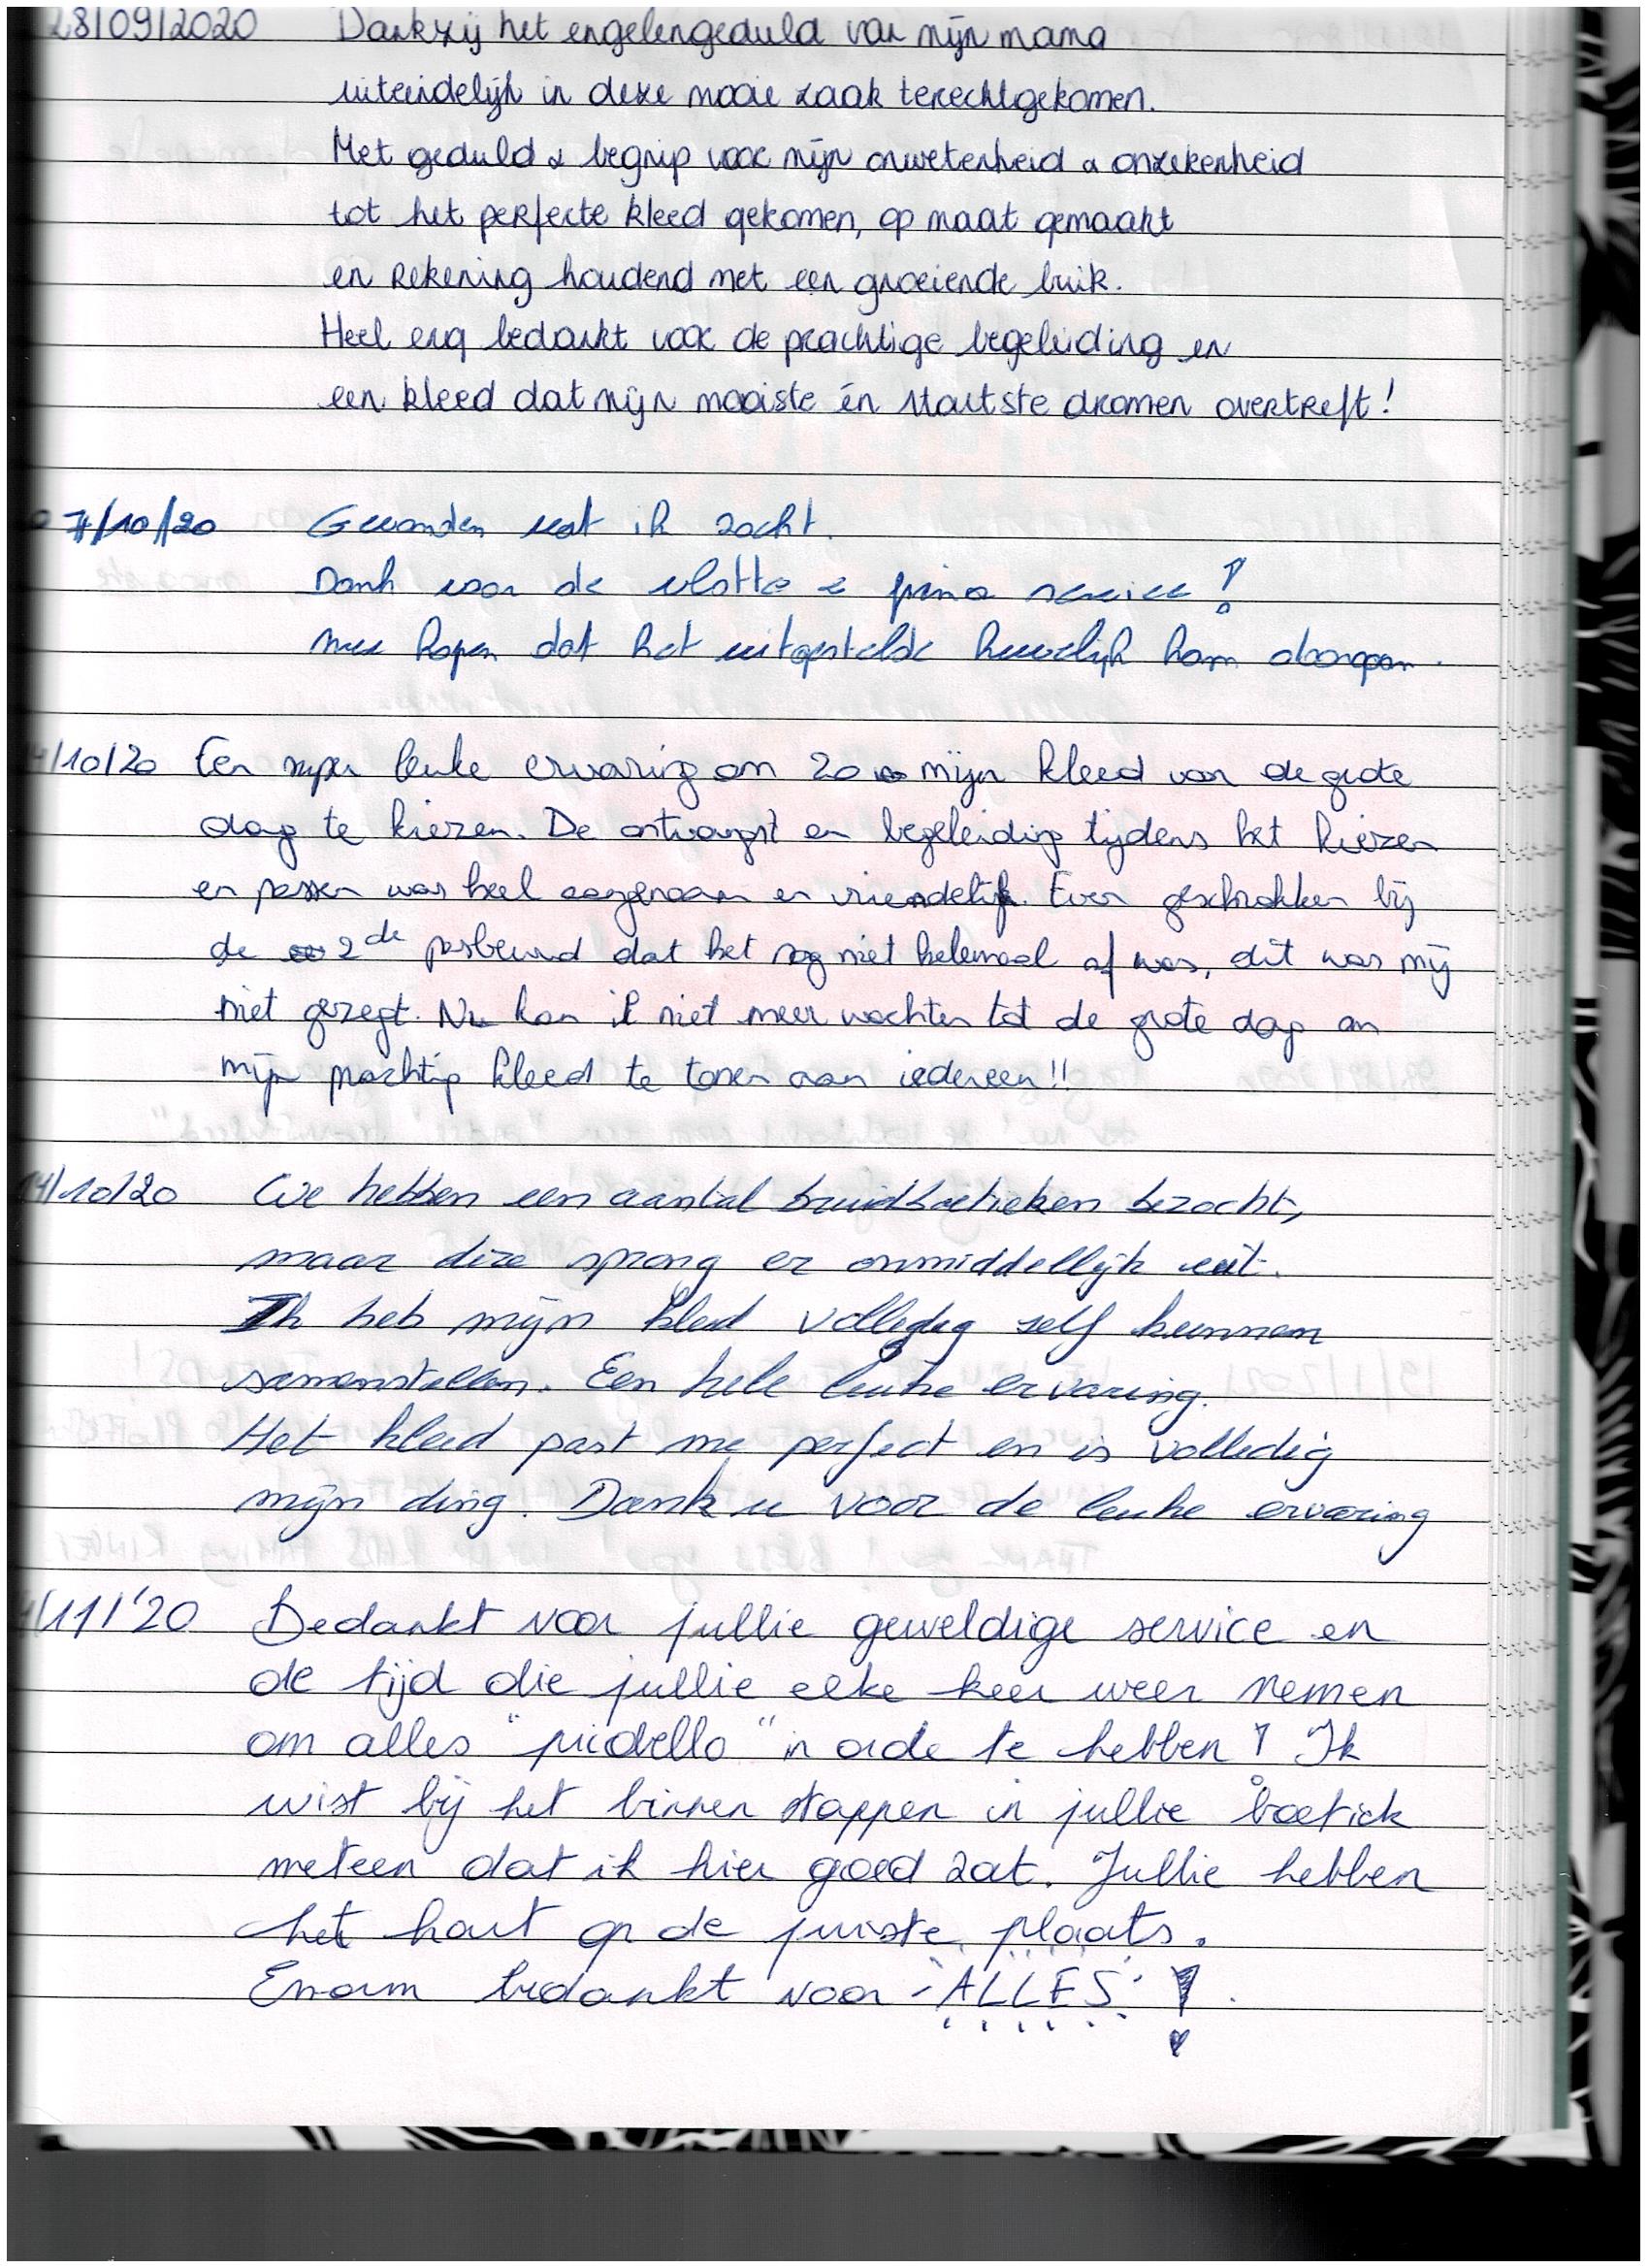 28/09/2020 Dankzij het engelengeduld van mijn mama
uiteindelijk in deze mooie zaak terechtgekomen.
Met geduld & begrip voor mijn onwetenheid & onzekerheid
tot het perfecte kleed gekomen, op maat gemaakt
en rekening houdend met een groeiende buik.
Heel erg bedankt voor de prachtige begeleiding en
een kleed dat mijn mooiste én stoutste dromen overtreft!
07/10/20 Gevonden wat ik zocht.
Dank voor de vlotte & fijne service!
Nu hopen dat het uitgestelde huwelijk kan doorgaan.
/10/20 Een super leuke ervaring om zo mijn kleed voor de grote
dag te kiezen. De ontvangst en begeleiding tijdens het kiezen
en passen was heel aangenaam en vriendelijk. Even geschrokken bij
de 2de pasbeurd dat het nog niet helemaal af was, dit was mij
niet gezegt. Nu kan ik niet meer wachten tot de grote dag om
mijn prachtig kleed te tonen aan iedereen!!
14/10/20 We hebben een aantal bruidboetieken bezocht,
maar deze sprong er onmiddellijk uit.
Ik heb mijn kleed volledig zelf kunnen
samenstellen. Een hele leuke ervaring.
Het kleed past me perfect en is volledig
mijn ding. Dank u voor de leuke ervaring
/11/'20 Bedankt voor jullie geweldige service en
de tijd die jullie elke keer weer nemen
om alles "picobello" in orde te hebben! Ik
wist bij het binnen stappen in jullie boetiek
meteen dat ik hier goed zat. Jullie hebben
het hart op de juiste plaats.
Enorm bedankt voor ALLES!